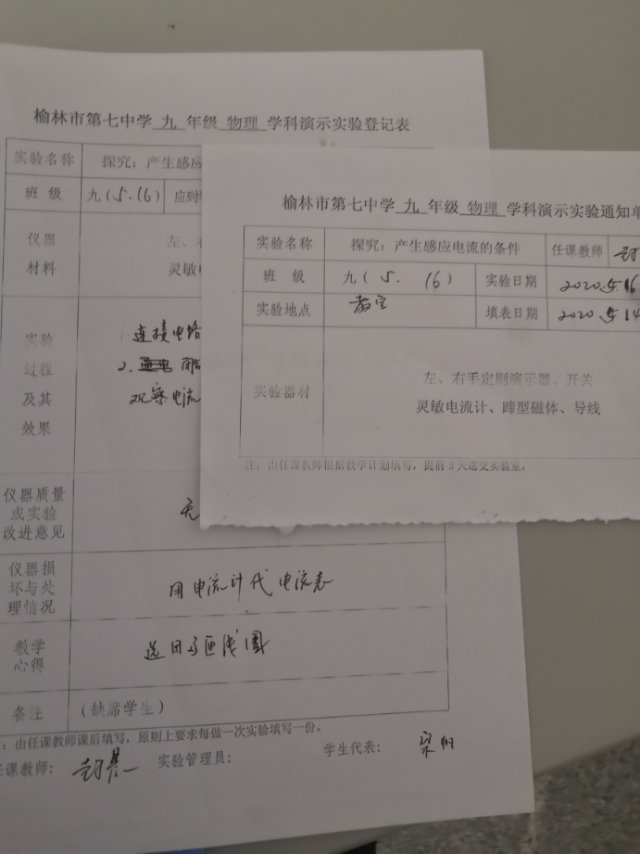 榆林市第七中学 九 年级 物理 学科演示实验登记表
实验名称 探究：产生感应
班 级 九（5.16） 应到
仪器
材料
左、右
灵敏电
实验
过程
及其
效果
1.连接电路
2.
观察电流
仪器质量
或实验
改进意见
无
仪器损
坏与处
理情况
用电流计代电流表
教学
心得
备注 （缺席学生）
：由任课教师课后填写，原则上要求每做一次实验填写一份。
任课教师： 实验管理员： 学生代表：
榆林市第七中学 九 年级 物理 学科演示实验通知单
实验名称 探究：产生感应电流的条件 任课教师
班 级 九（5. 16） 实验日期 2020.5.16
实验地点 教室 填表日期 2020.5.14
实验器材
左、右手定则演示器、开关
灵敏电流计、蹄型磁体、导线
注：由任课教师根据教学计划填写，提前3天送交实验室。